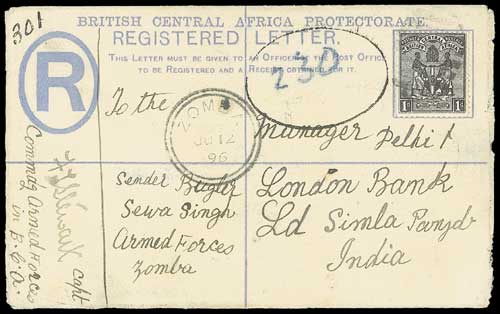 301
BRITISH CENTRAL AFRICA PROTECTORATE.
REGISTERED LETTER.
THIS LETTER MUST BE GIVEN TO AN OFFICER OF THE POST OFFICE
TO BE REGISTERED AND A RECEIPT OBTAINED FOR IT.
R
230
1d 1d
ZOMBA
JU 12
96
To the
Manager Delhi &
London Bank
Ld Simla Panjab
India
Sender Bugler
Sewa Singh
Armed Forces
Zomba
Capt
Commdg Armed Forces
in B.C.A.